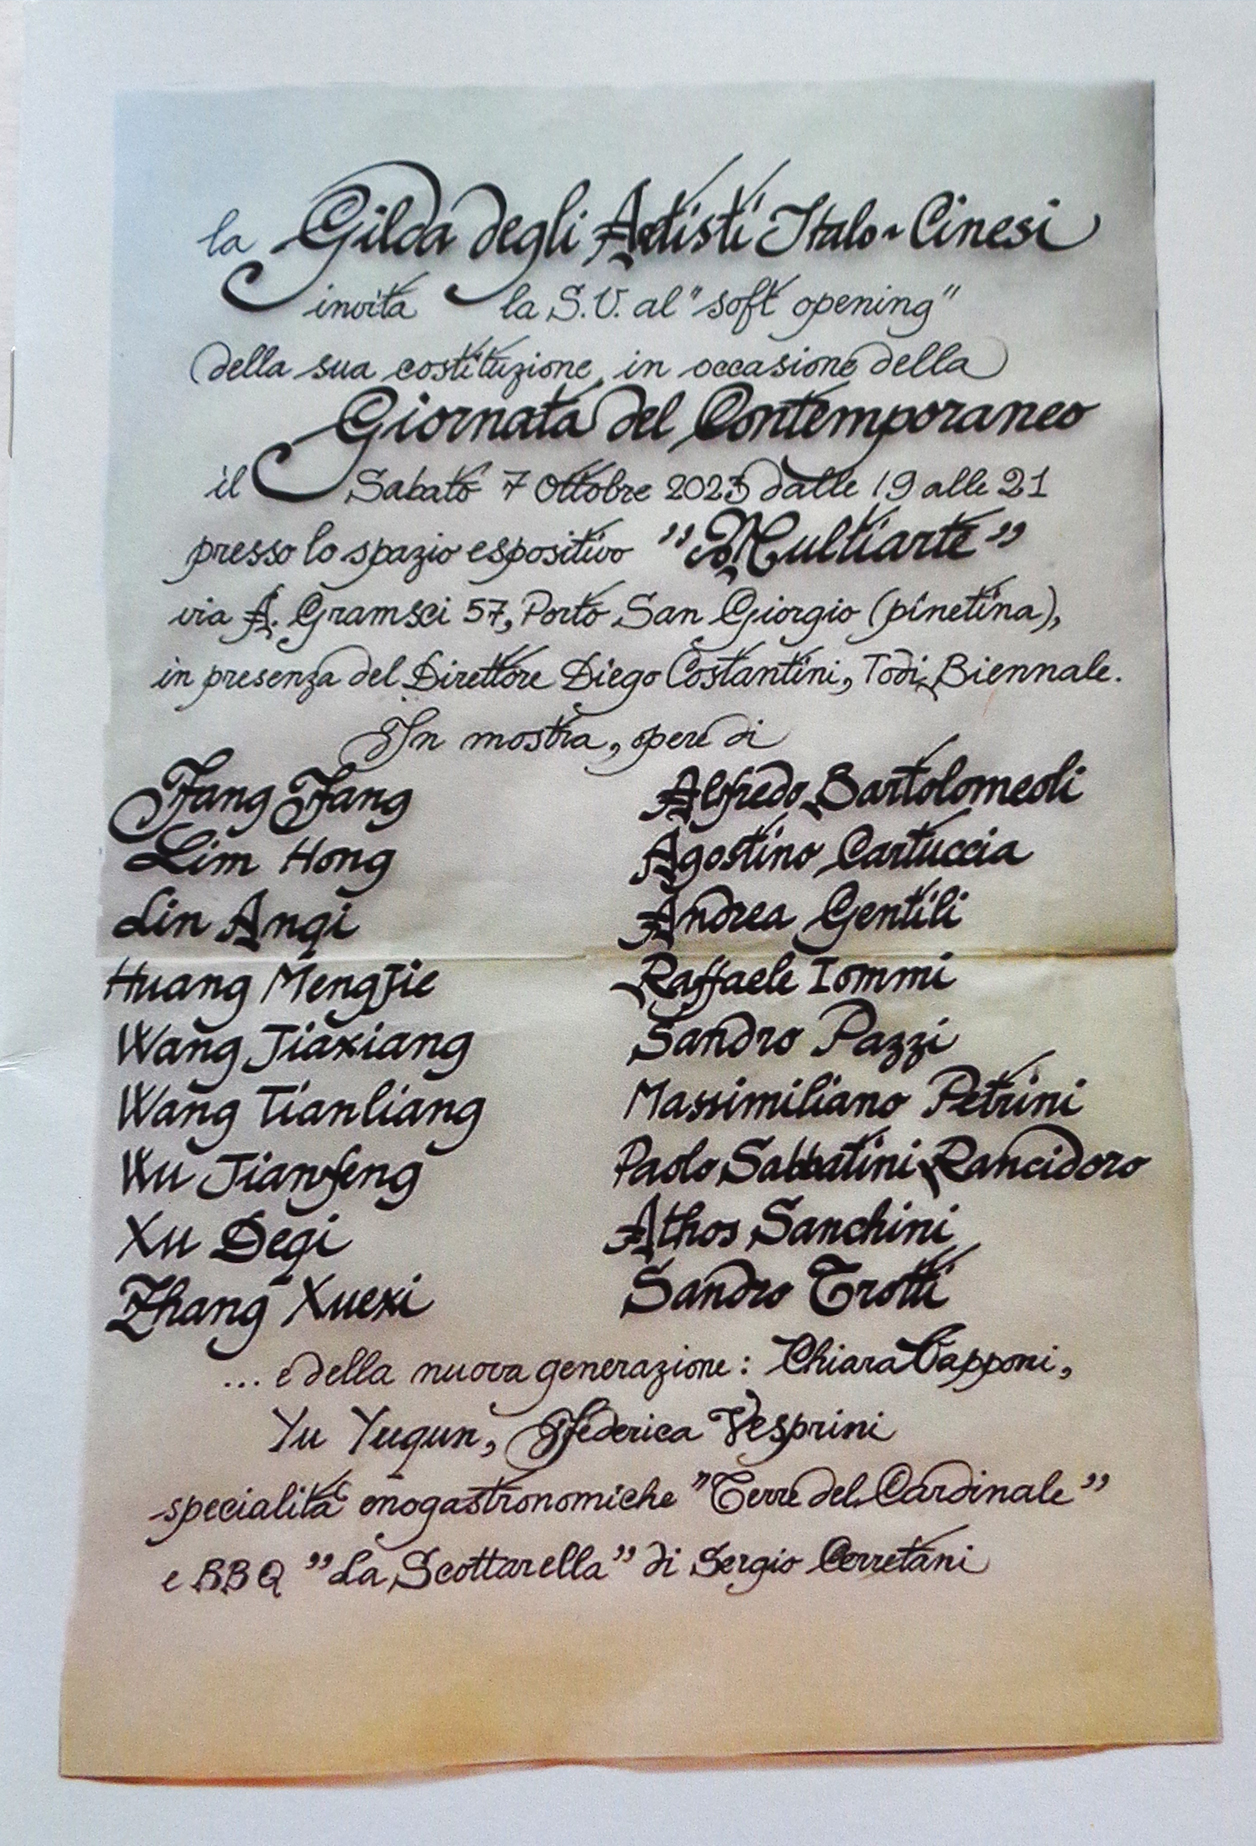 la Gilda degli Artisti Italo-Cinesi
invita la S.V. al "soft opening"
della sua costituzione, in occasione della
Giornata del Contemporaneo
il Sabato 7 Ottobre 2023 dalle 19 alle 21
presso lo spazio espositivo "Multiarte"
via A. Gramsci 57, Porto San Giorgio (pinetina),
in presenza del Direttore Diego Costantini, Todi Biennale.
In mostra, opere di
Fang Fang Alfredo Bartolomeoli
Lim Hong Agostino Cartuccia
Lin Anqi Andrea Gentili
Huang Mengjie Raffaele Iommi
Wang Jiaxiang Sandro Pazzi
Wang Tianliang Massimiliano Petrini
Wu Jianfeng Paolo Sabbatini Rancidoro
Xu Deqi Athos Sanchini
Zhang Xuexi Sandro Trotti
... e della nuova generazione: Chiara Capponi,
Yu Yuqun, Federica Vesprini
specialità enogastronomiche "Terre del Cardinale"
e BBQ "La Scottarella" di Sergio Cerretani